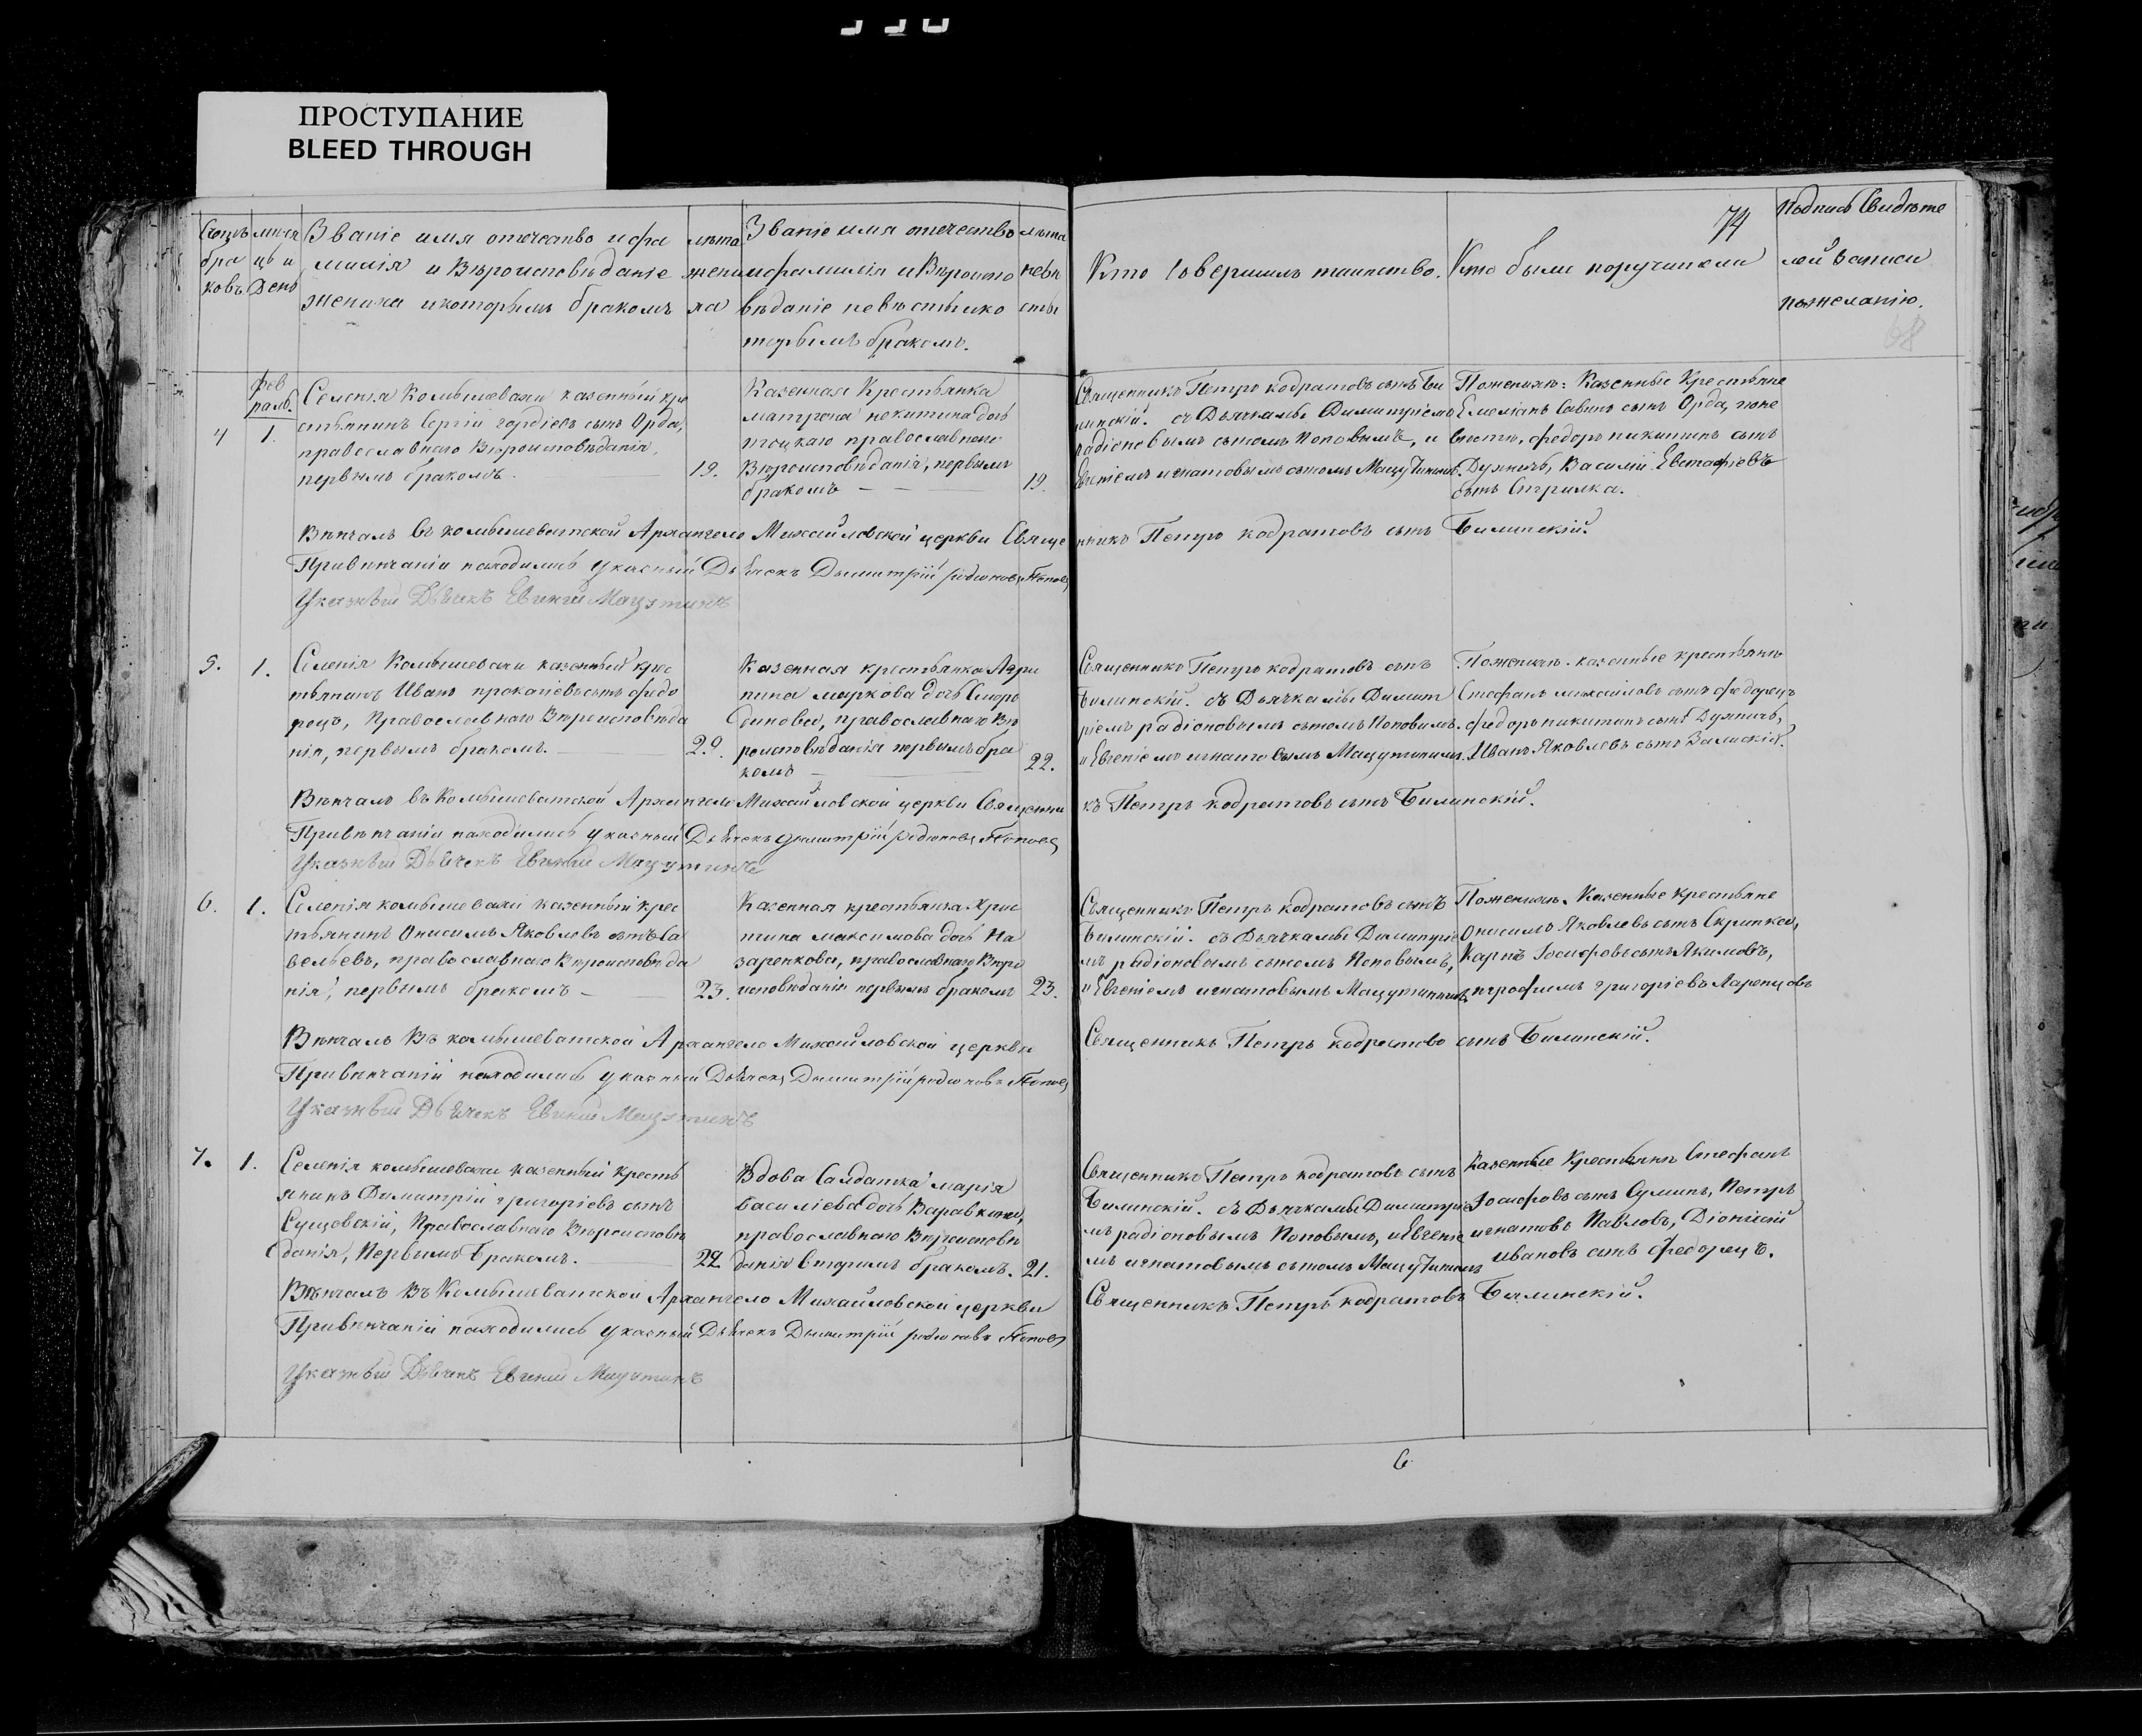 ПРОСТУПАНИЕ
BLEED THROUGH
74
68
Званіе имя отечество и фа
милія и Вѣроисповѣданіе
жениха и которымъ бракомъ
лѣта
жени
ха
Званіе имя отечество
и фамилія и Вѣроиспо
вѣданіе невѣсты и ко
торымъ бракомъ.
лѣта
невѣ
сты
Кто совершилъ таинство.
Кто были поручители
Подпись Свидѣте
лей записи
по желанію.
фев
раль.
4
1.
Селенія Комышевахи казенный кре
стьянинъ Сергій гордіевъ сынъ Орда,
православнаго Вѣроисповѣданія,
первымъ бракомъ.
19.
Казенная Крестьянка
матрона никитина дочь
православнаго
Вѣроисповѣданія, первымъ
бракомъ
19.
Священникъ Петръ кодратовъ сынъ Би
линскій. съ Дьячкамы Димитріемъ
радіоновымъ сыномъ Поповымъ, и
Евгеніемъ игнатовымъ сыномъ Мацутинымъ.
По женихѣ: Казенные Крестьяне
Емеліанъ Савинъ сынъ Орда, по не
вѣстѣ, федоръ никитинъ сынъ
Василій Евстафіевъ
сынъ Стрилка.
Вѣнчалъ въ комышеватской Архангело Михайловской церкви Священникъ Петръ кодратовъ сынъ Билинскій.
При вѣнчаніи находились указный Дьячекъ Димитрій родионовъ Поповъ
Указный Дьячекъ Евгеній Мацутинъ
5.
1.
Селенія Комышевахи казенный крес
тьянинъ Иванъ прокопіевъ сынъ федо
рецъ, Православнаго Вѣроисповѣда
нія, первымъ бракомъ.
29.
Казенная крестьянка Агри
пина маркова дочь
православнаго Вѣ
роисповѣданія первымъ бра
комъ
22.
Священникъ Петръ кодратовъ сынъ
Билинскій. съ Дьячкамы Димит
ріемъ радіоновымъ сыномъ Поповымъ.
и Евгеніемъ игнатовымъ Мацутинымъ.
По женихѣ. казенные крестьяне
Стефанъ михаиловъ сынъ федорецъ
федоръ никитинъ сынъ
Иванъ Яковлевъ сынъ Залискій.
Вѣнчалъ въ Комышеватской Архангело Михайловской церкви Священникъ Петръ кодратовъ сынъ Билинскій.
При вѣнчаніи находились указный Дьячекъ Димитрій родионовъ Поповъ
Указный Дьячекъ Евгеній Мацутинъ
6.
1.
Селенія комышевахи казенный крес
тьянинъ Онисимъ Яковлевъ сынъ Са
вельевъ, православнаго Вѣроисповѣда
нія, первымъ бракомъ
23.
Казенная крестьянка Хрис
тина максимова дочь На
заренкова, православнаго Вѣро
исповѣданія первымъ бракомъ
23.
Священникъ Петръ кодратовъ сынъ
Билинскій. съ Дьячкамы Димитріе
мъ радіоновымъ сыномъ Поповымъ,
и Евгеніемъ игнатовымъ Мацутинымъ
По женихѣ. Казенные крестьяне
Онисимъ Яковлевъ сынъ Скрипка,
Карпъ Іосифовъ сынъ Якимовъ,
трофимъ григоріевъ Ларенцовъ
Вѣнчалъ Въ комышеватской Архангело Михайловской церкви Священникъ Петръ кодратовъ сынъ Билинскій.
При вѣнчаніи находились указный Дьячекъ Димитрій родионовъ Поповъ
Указный Дьячекъ Евгеній Мацутинъ
7.
1.
Селенія комышевахи казенный Кресть
янинъ Димитрій григоріевъ сынъ
Сущевскій, Православнаго Вѣроисповѣ
данія, Первымъ Бракомъ.
22
Вдова Салдатка марія
василіева дочь Варавкина,
православнаго Вѣроисповѣ
данія вторымъ бракомъ.
21.
Священникъ Петръ кодратовъ сынъ
Билинскій. съ Дьячкамы Димитріе
мъ радіоновымъ Поповымъ, и Евгеніе
мъ игнатовымъ сыномъ Мацутинымъ
Казенные Крестьяне Стефанъ
Іосифовъ сынъ Сулима, Петръ
игнатовъ Павловъ, Діонисій
ивановъ сынъ Федорецъ.
Вѣнчалъ Въ Комышеватской Архангело Михайловской церкви Священникъ Петръ кодратовъ Билинскій.
При вѣнчаніи находились указный Дьячекъ Димитрій родионовъ Поповъ
Указный Дьячекъ Евгеній Мацутинъ
6